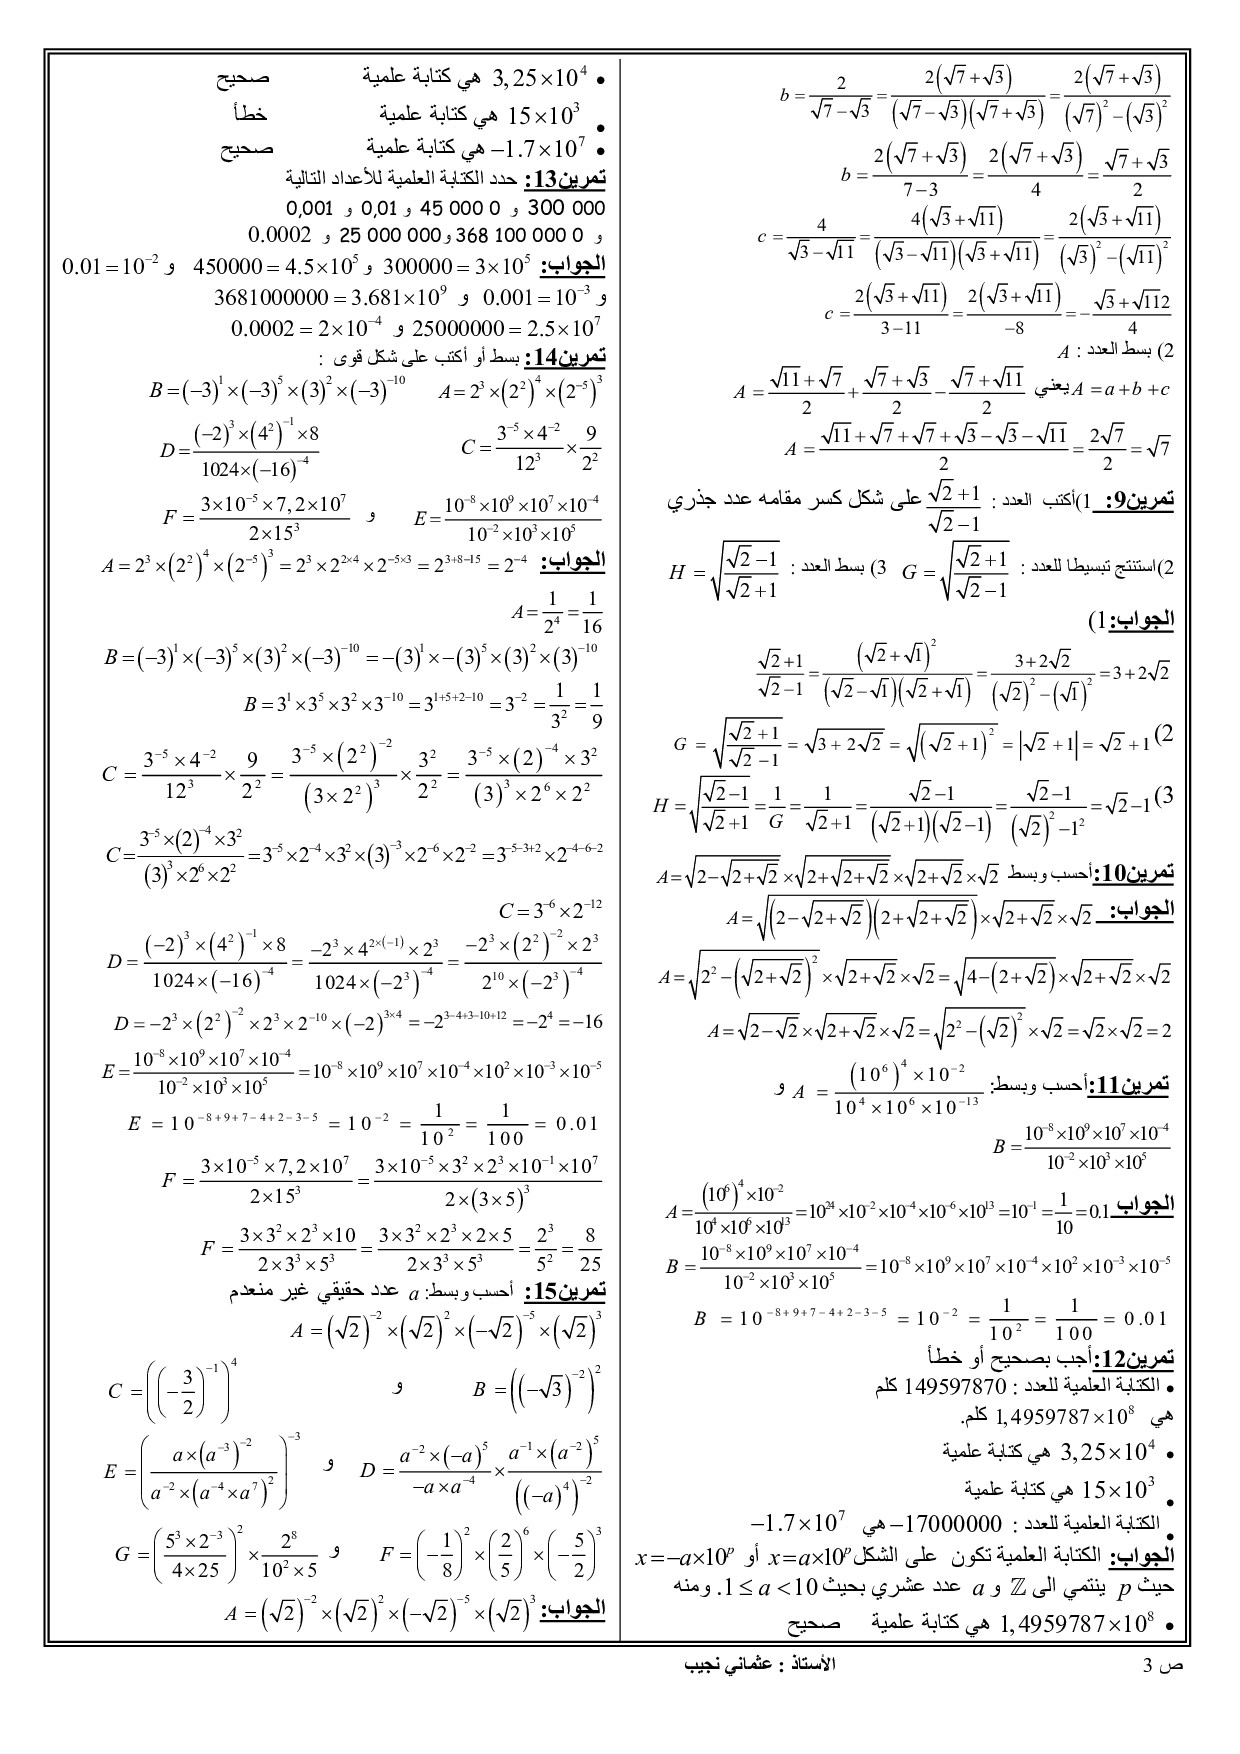 b = \frac{2}{\sqrt{7}-\sqrt{3}} = \frac{2(\sqrt{7}+\sqrt{3})}{(\sqrt{7}-\sqrt{3})(\sqrt{7}+\sqrt{3})} = \frac{2(\sqrt{7}+\sqrt{3})}{(\sqrt{7})^2-(\sqrt{3})^2}
b = \frac{2(\sqrt{7}+\sqrt{3})}{7-3} = \frac{2(\sqrt{7}+\sqrt{3})}{4} = \frac{\sqrt{7}+\sqrt{3}}{2}
c = \frac{4}{\sqrt{3}-\sqrt{11}} = \frac{4(\sqrt{3}+\sqrt{11})}{(\sqrt{3}-\sqrt{11})(\sqrt{3}+\sqrt{11})} = \frac{2(\sqrt{3}+\sqrt{11})}{(\sqrt{3})^2-(\sqrt{11})^2}
c = \frac{2(\sqrt{3}+\sqrt{11})}{3-11} = \frac{2(\sqrt{3}+\sqrt{11})}{-8} = -\frac{\sqrt{3}+\sqrt{11}2}{4}
2) بسط العدد : A
A = a+b+c يعني A = \frac{\sqrt{11}+\sqrt{7}}{2} + \frac{\sqrt{7}+\sqrt{3}}{2} - \frac{\sqrt{7}+\sqrt{11}}{2}
A = \frac{\sqrt{11}+\sqrt{7}+\sqrt{7}+\sqrt{3}-\sqrt{3}-\sqrt{11}}{2} = \frac{2\sqrt{7}}{2} = \sqrt{7}
تمرين9: 1)أكتب العدد : \frac{\sqrt{2}+1}{\sqrt{2}-1} على شكل كسر مقامه عدد جذري
2)استنتج تبسيطا للعدد : G = \sqrt{\frac{\sqrt{2}+1}{\sqrt{2}-1}} 3) بسط العدد : H = \sqrt{\frac{\sqrt{2}-1}{\sqrt{2}+1}}
الجواب:1)
\frac{\sqrt{2}+1}{\sqrt{2}-1} = \frac{(\sqrt{2}+\sqrt{1})^2}{(\sqrt{2}-\sqrt{1})(\sqrt{2}+\sqrt{1})} = \frac{3+2\sqrt{2}}{(\sqrt{2})^2-(\sqrt{1})^2} = 3+2\sqrt{2}
2) G = \sqrt{\frac{\sqrt{2}+1}{\sqrt{2}-1}} = \sqrt{3+2\sqrt{2}} = \sqrt{(\sqrt{2}+1)^2} = |\sqrt{2}+1| = \sqrt{2}+1
3) H = \sqrt{\frac{\sqrt{2}-1}{\sqrt{2}+1}} = \frac{1}{G} = \frac{1}{\sqrt{2}+1} = \frac{\sqrt{2}-1}{(\sqrt{2}+1)(\sqrt{2}-1)} = \frac{\sqrt{2}-1}{(\sqrt{2})^2-1^2} = \sqrt{2}-1
تمرين10:أحسب وبسط A = \sqrt{2-\sqrt{2+\sqrt{2}}} × \sqrt{2+\sqrt{2+\sqrt{2}}} × \sqrt{2+\sqrt{2}} × \sqrt{2}
الجواب: A = \sqrt{(2-\sqrt{2+\sqrt{2}})(2+\sqrt{2+\sqrt{2}})} × \sqrt{2+\sqrt{2}} × \sqrt{2}
A = \sqrt{2^2-(\sqrt{2+\sqrt{2}})^2} × \sqrt{2+\sqrt{2}} × \sqrt{2} = \sqrt{4-(2+\sqrt{2})} × \sqrt{2+\sqrt{2}} × \sqrt{2}
A = \sqrt{2-\sqrt{2}} × \sqrt{2+\sqrt{2}} × \sqrt{2} = \sqrt{2^2-(\sqrt{2})^2} × \sqrt{2} = \sqrt{2} × \sqrt{2} = 2
تمرين11:أحسب وبسط: A = \frac{(10^6)^4 × 10^{-2}}{10^4 × 10^6 × 10^{-13}} و
B = \frac{10^{-8} × 10^9 × 10^7 × 10^{-4}}{10^{-2} × 10^3 × 10^5}
الجواب A = \frac{(10^6)^4 × 10^{-2}}{10^4 × 10^6 × 10^{13}} = 10^{24} × 10^{-2} × 10^{-4} × 10^{-6} × 10^{13} = 10^{-1} = \frac{1}{10} = 0.1
B = \frac{10^{-8} × 10^9 × 10^7 × 10^{-4}}{10^{-2} × 10^3 × 10^5} = 10^{-8} × 10^9 × 10^7 × 10^{-4} × 10^2 × 10^{-3} × 10^{-5}
B = 10^{-8+9+7-4+2-3-5} = 10^{-2} = \frac{1}{10^2} = \frac{1}{100} = 0.01
تمرين12:أجب بصحيح أو خطأ
• الكتابة العلمية للعدد : 149597870 كلم
هي 1,4959787×10^8 كلم.
• 3,25×10^4 هي كتابة علمية
• 15×10^3 هي كتابة علمية
• الكتابة العلمية للعدد : 17000000− هي −1.7×10^7
الجواب: الكتابة العلمية تكون على الشكل x=a×10^p أو x=−a×10^p
حيث p ينتمي الى ℤ و a عدد عشري بحيث 1 ≤ a < 10. ومنه
• 1,4959787×10^8 هي كتابة علمية صحيح
• 3,25×10^4 هي كتابة علمية صحيح
• 15×10^3 هي كتابة علمية خطأ
• −1.7×10^7 هي كتابة علمية صحيح
تمرين13: حدد الكتابة العلمية للأعداد التالية
300 000 و 45 000 0 و 0,01 و 0,001
و 368 100 000 0 و 25 000 000 و 0.0002
الجواب: 300000 = 3×10^5 و 450000 = 4.5×10^5 و 0.01 = 10^{-2}
و 0.001 = 10^{-3} و 3681000000 = 3.681×10^9
25000000 = 2.5×10^7 و 0.0002 = 2×10^{-4}
تمرين14: بسط أو أكتب على شكل قوى :
A = 2^3 × (2^2)^4 × (2^{-5})^3 B = (−3)^1 × (−3)^5 × (3)^2 × (−3)^{-10}
C = \frac{3^{-5} × 4^{-2}}{12^3} × \frac{9}{2^2} D = \frac{(−2)^3 × (4^2)^{-1} × 8}{1024 × (−16)^{-4}}
E = \frac{10^{-8} × 10^9 × 10^7 × 10^{-4}}{10^{-2} × 10^3 × 10^5} و F = \frac{3×10^{-5} × 7,2×10^7}{2×15^3}
الجواب: A = 2^3 × (2^2)^4 × (2^{-5})^3 = 2^3 × 2^{2×4} × 2^{-5×3} = 2^{3+8−15} = 2^{-4}
A = \frac{1}{2^4} = \frac{1}{16}
B = (−3)^1 × (−3)^5 × (3)^2 × (−3)^{-10} = −(3)^1 × −(3)^5 × (3)^2 × (3)^{-10}
B = 3^1 × 3^5 × 3^2 × 3^{-10} = 3^{1+5+2−10} = 3^{-2} = \frac{1}{3^2} = \frac{1}{9}
C = \frac{3^{-5} × 4^{-2}}{12^3} × \frac{9}{2^2} = \frac{3^{-5} × (2^2)^{-2}}{(3×2^2)^3} × \frac{3^2}{2^2} = \frac{3^{-5} × (2)^{-4} × 3^2}{(3)^3 × 2^6 × 2^2}
C = \frac{3^{-5} × (2)^{-4} × 3^2}{(3)^3 × 2^6 × 2^2} = 3^{-5} × 2^{-4} × 3^2 × (3)^{-3} × 2^{-6} × 2^{-2} = 3^{-5−3+2} × 2^{-4−6−2}
C = 3^{-6} × 2^{-12}
D = \frac{(−2)^3 × (4^2)^{-1} × 8}{1024 × (−16)^{-4}} = \frac{−2^3 × 4^{2×(−1)} × 2^3}{1024 × (−2^3)^{-4}} = \frac{−2^3 × (2^2)^{-2} × 2^3}{2^{10} × (−2^3)^{-4}}
D = −2^3 × (2^2)^{-2} × 2^3 × 2^{-10} × (−2)^{3×4} = −2^{3−4+3−10+12} = −2^4 = −16
E = \frac{10^{-8} × 10^9 × 10^7 × 10^{-4}}{10^{-2} × 10^3 × 10^5} = 10^{-8} × 10^9 × 10^7 × 10^{-4} × 10^2 × 10^{-3} × 10^{-5}
E = 10^{-8+9+7−4+2−3−5} = 10^{-2} = \frac{1}{10^2} = \frac{1}{100} = 0.01
F = \frac{3×10^{-5} × 7,2×10^7}{2×15^3} = \frac{3×10^{-5} × 3^2 × 2^3 × 10^{-1} × 10^7}{2×(3×5)^3}
F = \frac{3×3^2×2^3×10}{2×3^3×5^3} = \frac{3×3^2×2^3×2×5}{2×3^3×5^3} = \frac{2^3}{5^2} = \frac{8}{25}
تمرين15: أحسب وبسط: a عدد حقيقي غير منعدم
A = (\sqrt{2})^{-2} × (\sqrt{2})^2 × (−\sqrt{2})^{-5} × (\sqrt{2})^3
B = ((−\sqrt{3})^{-2})^2 و C = ((−\frac{3}{2})^{-1})^4
D = \frac{a^{-2} × (−a)^5}{−a × a^{-4}} × \frac{a^{-1} × (a^{-2})^5}{((−a)^4)^{-2}} و E = (\frac{a × (a^{-3})^{-2}}{a^{-2} × (a^{-4} × a^7)^2})^{-3}
F = (−\frac{1}{8})^2 × (\frac{2}{5})^6 × (−\frac{5}{2})^3 و G = (\frac{5^3 × 2^{-3}}{4×25})^2 × \frac{2^8}{10^2 × 5}
الجواب: A = (\sqrt{2})^{-2} × (\sqrt{2})^2 × (−\sqrt{2})^{-5} × (\sqrt{2})^3
ص 3 الأستاذ : عثماني نجيب